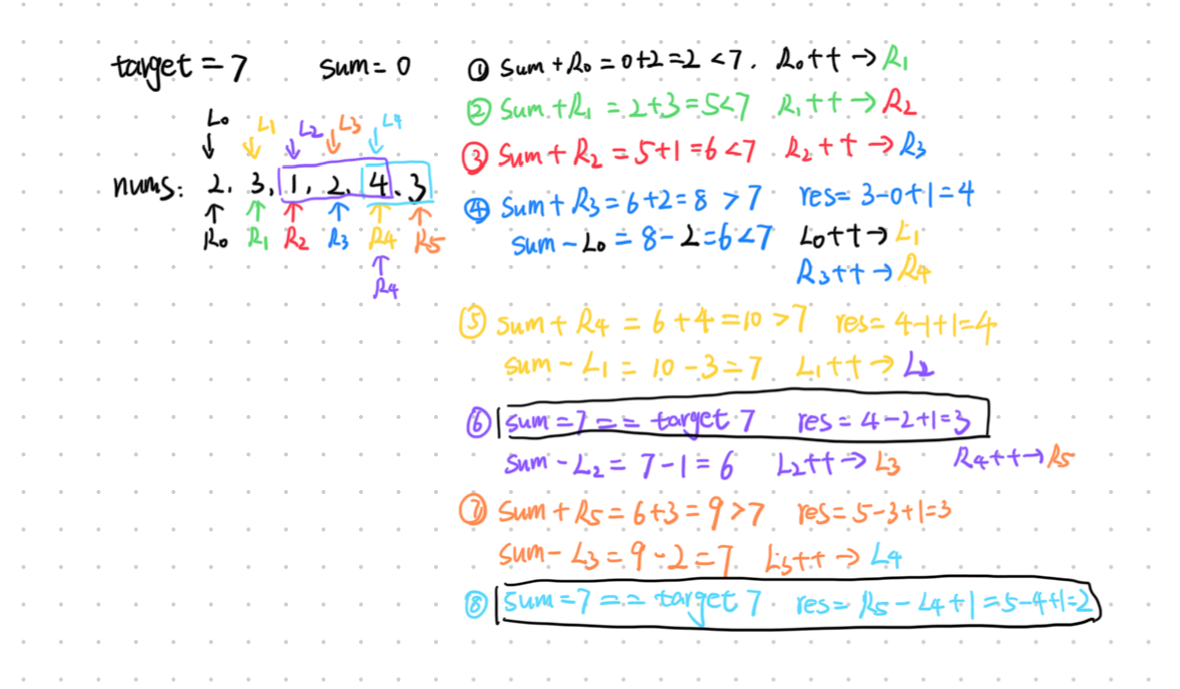 target = 7 sum = 0
L₀ L₁ L₂ L₃ L₄
nums: 2, 3, 1, 2, 4, 3
R₀ R₁ R₂ R₃ R₄ R₅
R₄
① Sum + R₀ = 0+2 = 2 < 7. R₀++ → R₁
② Sum + R₁ = 2+3 = 5 < 7 R₁++ → R₂
③ Sum + R₂ = 5+1 = 6 < 7 R₂++ → R₃
④ Sum + R₃ = 6+2 = 8 > 7 res = 3-0+1 = 4
sum - L₀ = 8-2 = 6 < 7 L₀++ → L₁
R₃++ → R₄
⑤ sum + R₄ = 6+4 = 10 > 7 res = 4-1+1 = 4
sum - L₁ = 10-3 = 7 L₁++ → L₂
⑥ sum = 7 == target 7 res = 4-2+1 = 3
sum - L₂ = 7-1 = 6 L₂++ → L₃ R₄++ → R₅
⑦ sum + R₅ = 6+3 = 9 > 7 res = 5-3+1 = 3
sum - L₃ = 9-2 = 7 L₃++ → L₄
⑧ sum = 7 == target 7 res = R₅ - L₄ + 1 = 5-4+1 = 2